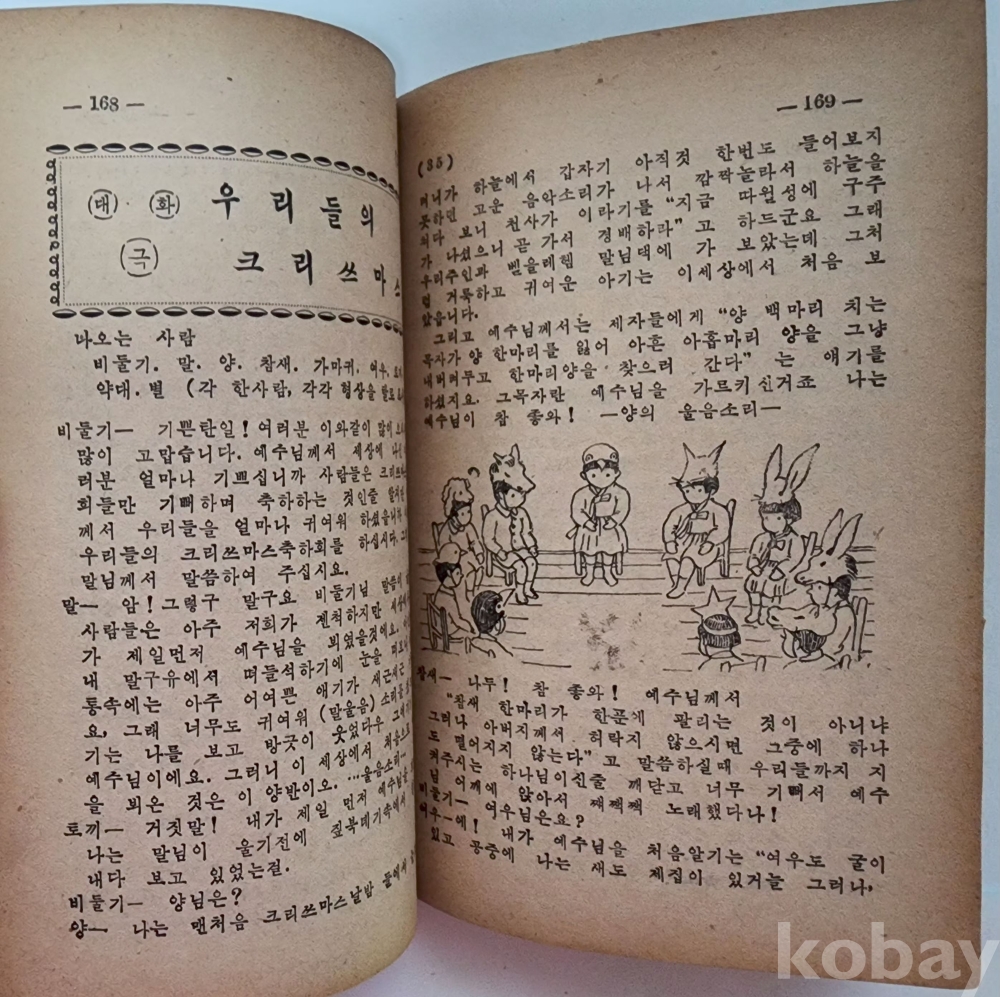 — 168 —
대 화 우리들의
극 크리쓰마스
나오는 사람
비둘기. 말. 양. 참새. 가마귀, 여우,
약대. 별 (각 한사람, 각각 형상을
비둘기— 기쁜탄일! 여러분 이와같이 많이
많이 고맙습니다. 예수님께서 세상에
러분 얼마나 기쁘십니까 사람들은
희들만 기뻐하며 축하하는 것인줄
께서 우리들을 얼마나 귀여워 하셨읍니까
우리들의 크리쓰마스축하회를 하십시다.
말님께서 말씀하여 주십시요.
말— 암! 그렇구 말구요 비둘기님 말씀이
사람들은 아주 저희가 젠척하지만
가 제일먼저 예수님을 뵈였을것에요.
내 말구유에서 떠들석하기에 눈을
통속에는 아주 어여쁜 애기가 새근새근
요, 그래 너무도 귀여워 (말울음) 소리를
기는 나를 보고 방긋이 웃었다우
예수님이에요. 그러니 이 세상에서 처음으로
을 뵈온 것은 이 양반이오. …울음소리—
토끼— 거짓말! 내가 제일 먼저 예수님을
나는 말님이 울기전에 짚북데기속에서
내다 보고 있었는걸.
비둘기— 양님은?
양— 나는 맨처음 크리쓰마스날밤 뜰에서
— 169 —
(35)
려니가 하늘에서 갑자기 아직것 한번도 들어보지
못하던 고운 음악소리가 나서 깜짝놀라서 하늘을
처다 보니 천사가 이라기를 “지금 따윗성에 구주
가 나셨으니 곧 가서 경배하라”고 하드군요 그래
우리주인과 벧을레헴 말님댁에 가 보았는데 그처
럼 거룩하고 귀여운 아기는 이세상에서 처음 보
았읍니다.
그리고 예수님께서는 제자들에게 “양 백마리 치는
목자가 양 한마리를 잃어 아흔 아홉마리 양을 그냥
내버려두고 한마리양을 찾으러 간다”는 얘기를
하셨지요. 그목자란 예수님을 가르키신거죠 나는
예수님이 참 좋와! —양의 울음소리—
참새— 나두! 참 좋와! 예수님께서
“참새 한마리가 한푼에 팔리는 것이 아니냐
그러나 아버지께서 허락지 않으시면 그중에 하나
도 떨어지지 않는다”고 말씀하실때 우리들까지 지
켜주시는 하나님이신줄 깨닫고 너무 기뻐서 예수
님 어깨에 앉아서 째짹짹 노래했다나!
비둘기— 여우님은요?
여우—에! 내가 예수님을 처음알기는 “여우도 굴이
있고 공중에 나는 새도 제집이 있거늘 그러나,
kobay